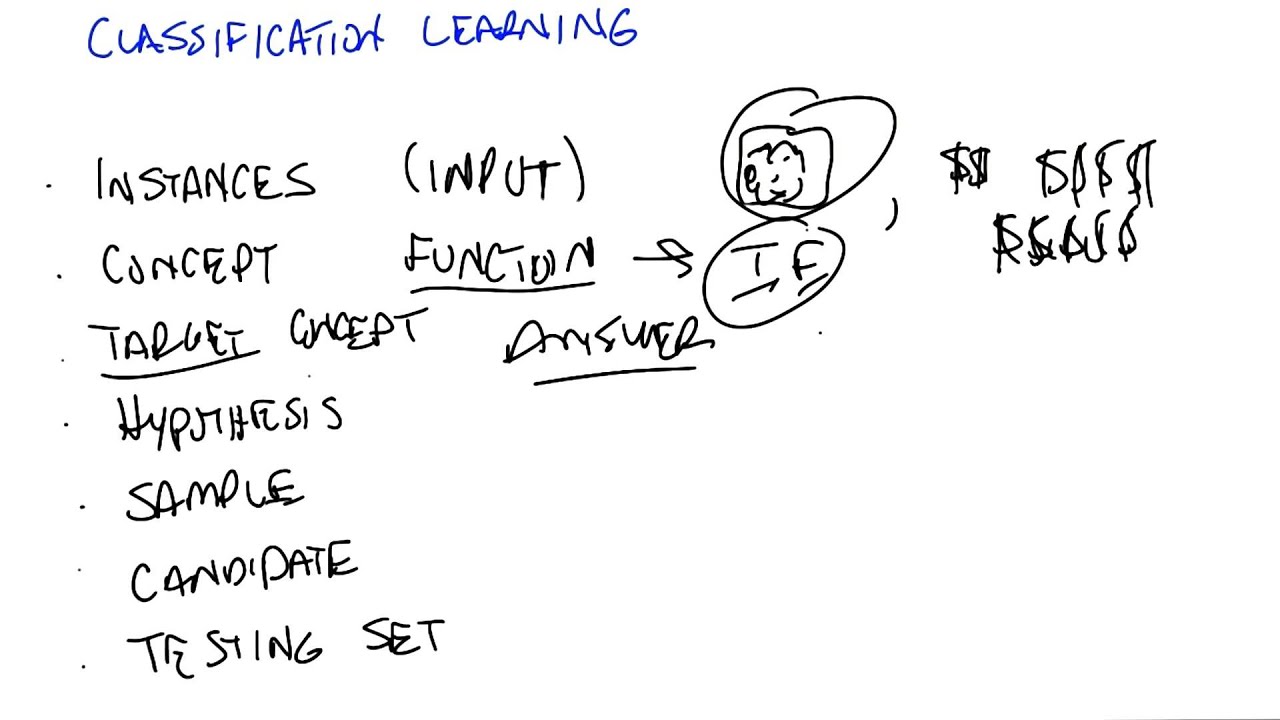 CLASSIFICATION LEARNING
INSTANCES (INPUT) , $$ $$$$
$$$$$
CONCEPT FUNCTION → T F
TARGET CONCEPT ANSWER
HYPOTHESIS
SAMPLE
CANDIDATE
TESTING SET